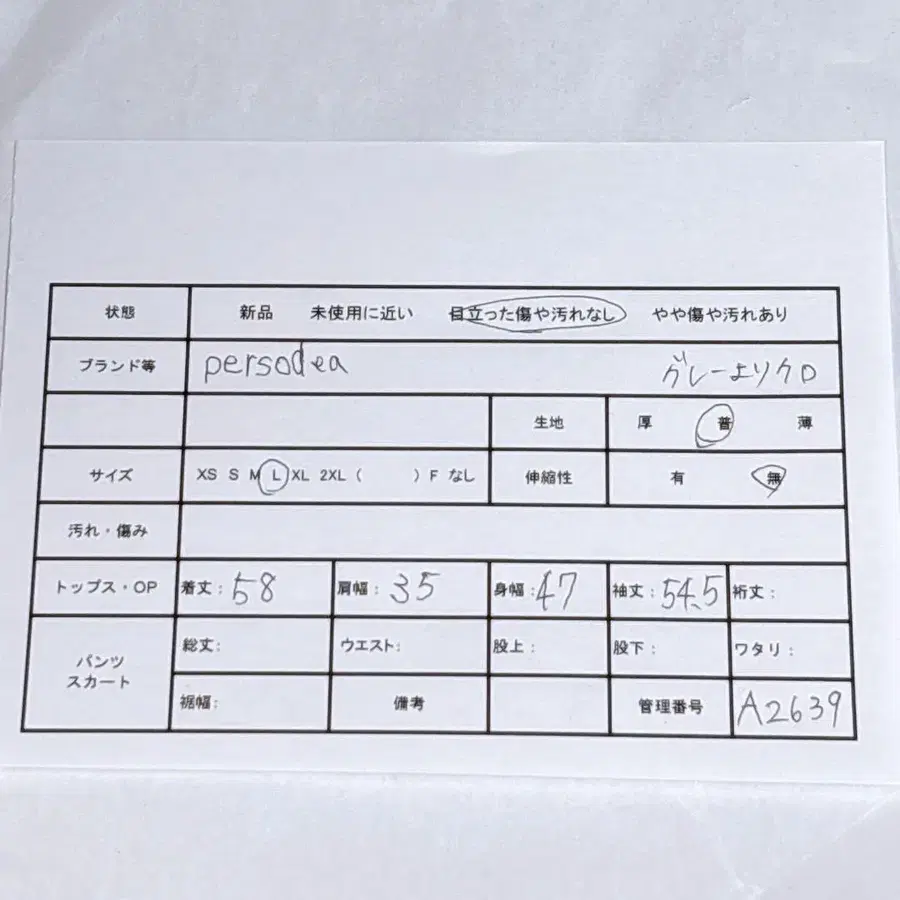 状態 新品 未使用に近い 目立った傷や汚れなし やや傷や汚れあり
ブランド等 persodea グレーよりクロ
生地 厚 普 薄
サイズ XS S M L XL 2XL ( ) F なし 伸縮性 有 無
汚れ・傷み
トップス・OP 着丈: 58 肩幅: 35 身幅: 47 袖丈: 54.5 裄丈:
パンツ
スカート
総丈: ウエスト: 股上: 股下: ワタリ:
裾幅: 備考 管理番号 A2639